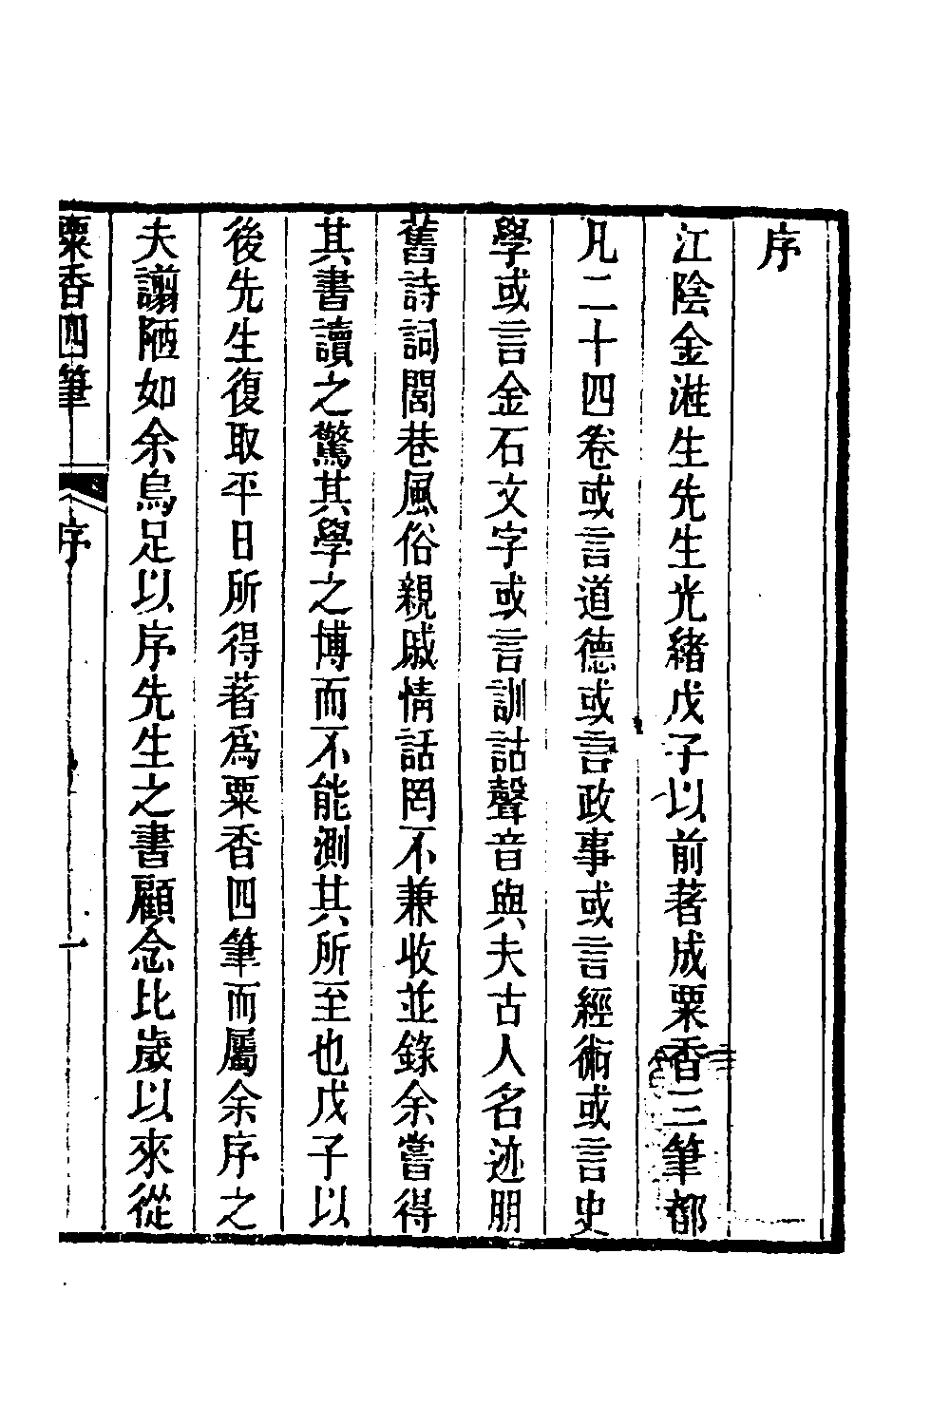 序
江陰金溎生先生光緒戊子以前著成粟香三筆都
凡二十四卷或言道德或言政事或言經術或言史
學或言金石文字或言訓詁聲音與夫古人名迹朋
舊詩詞閭巷風俗親戚情話罔不兼收並錄余嘗得
其書讀之驚其學之博而不能測其所至也戊子以
後先生復取平日所得著爲粟香四筆而屬余序之
夫謭陋如余烏足以序先生之書顧念比歲以來從
粟香四筆
序
一